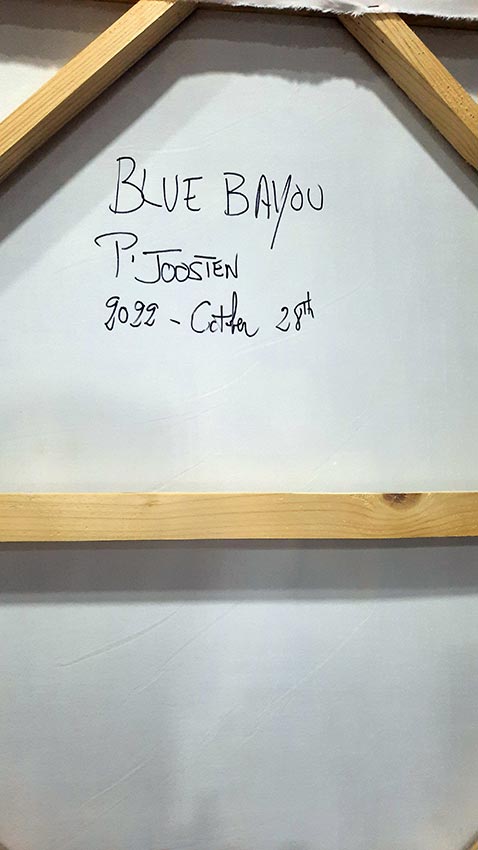 BLUE BAYOU
P. JOOSTEN
2022 - October 28th